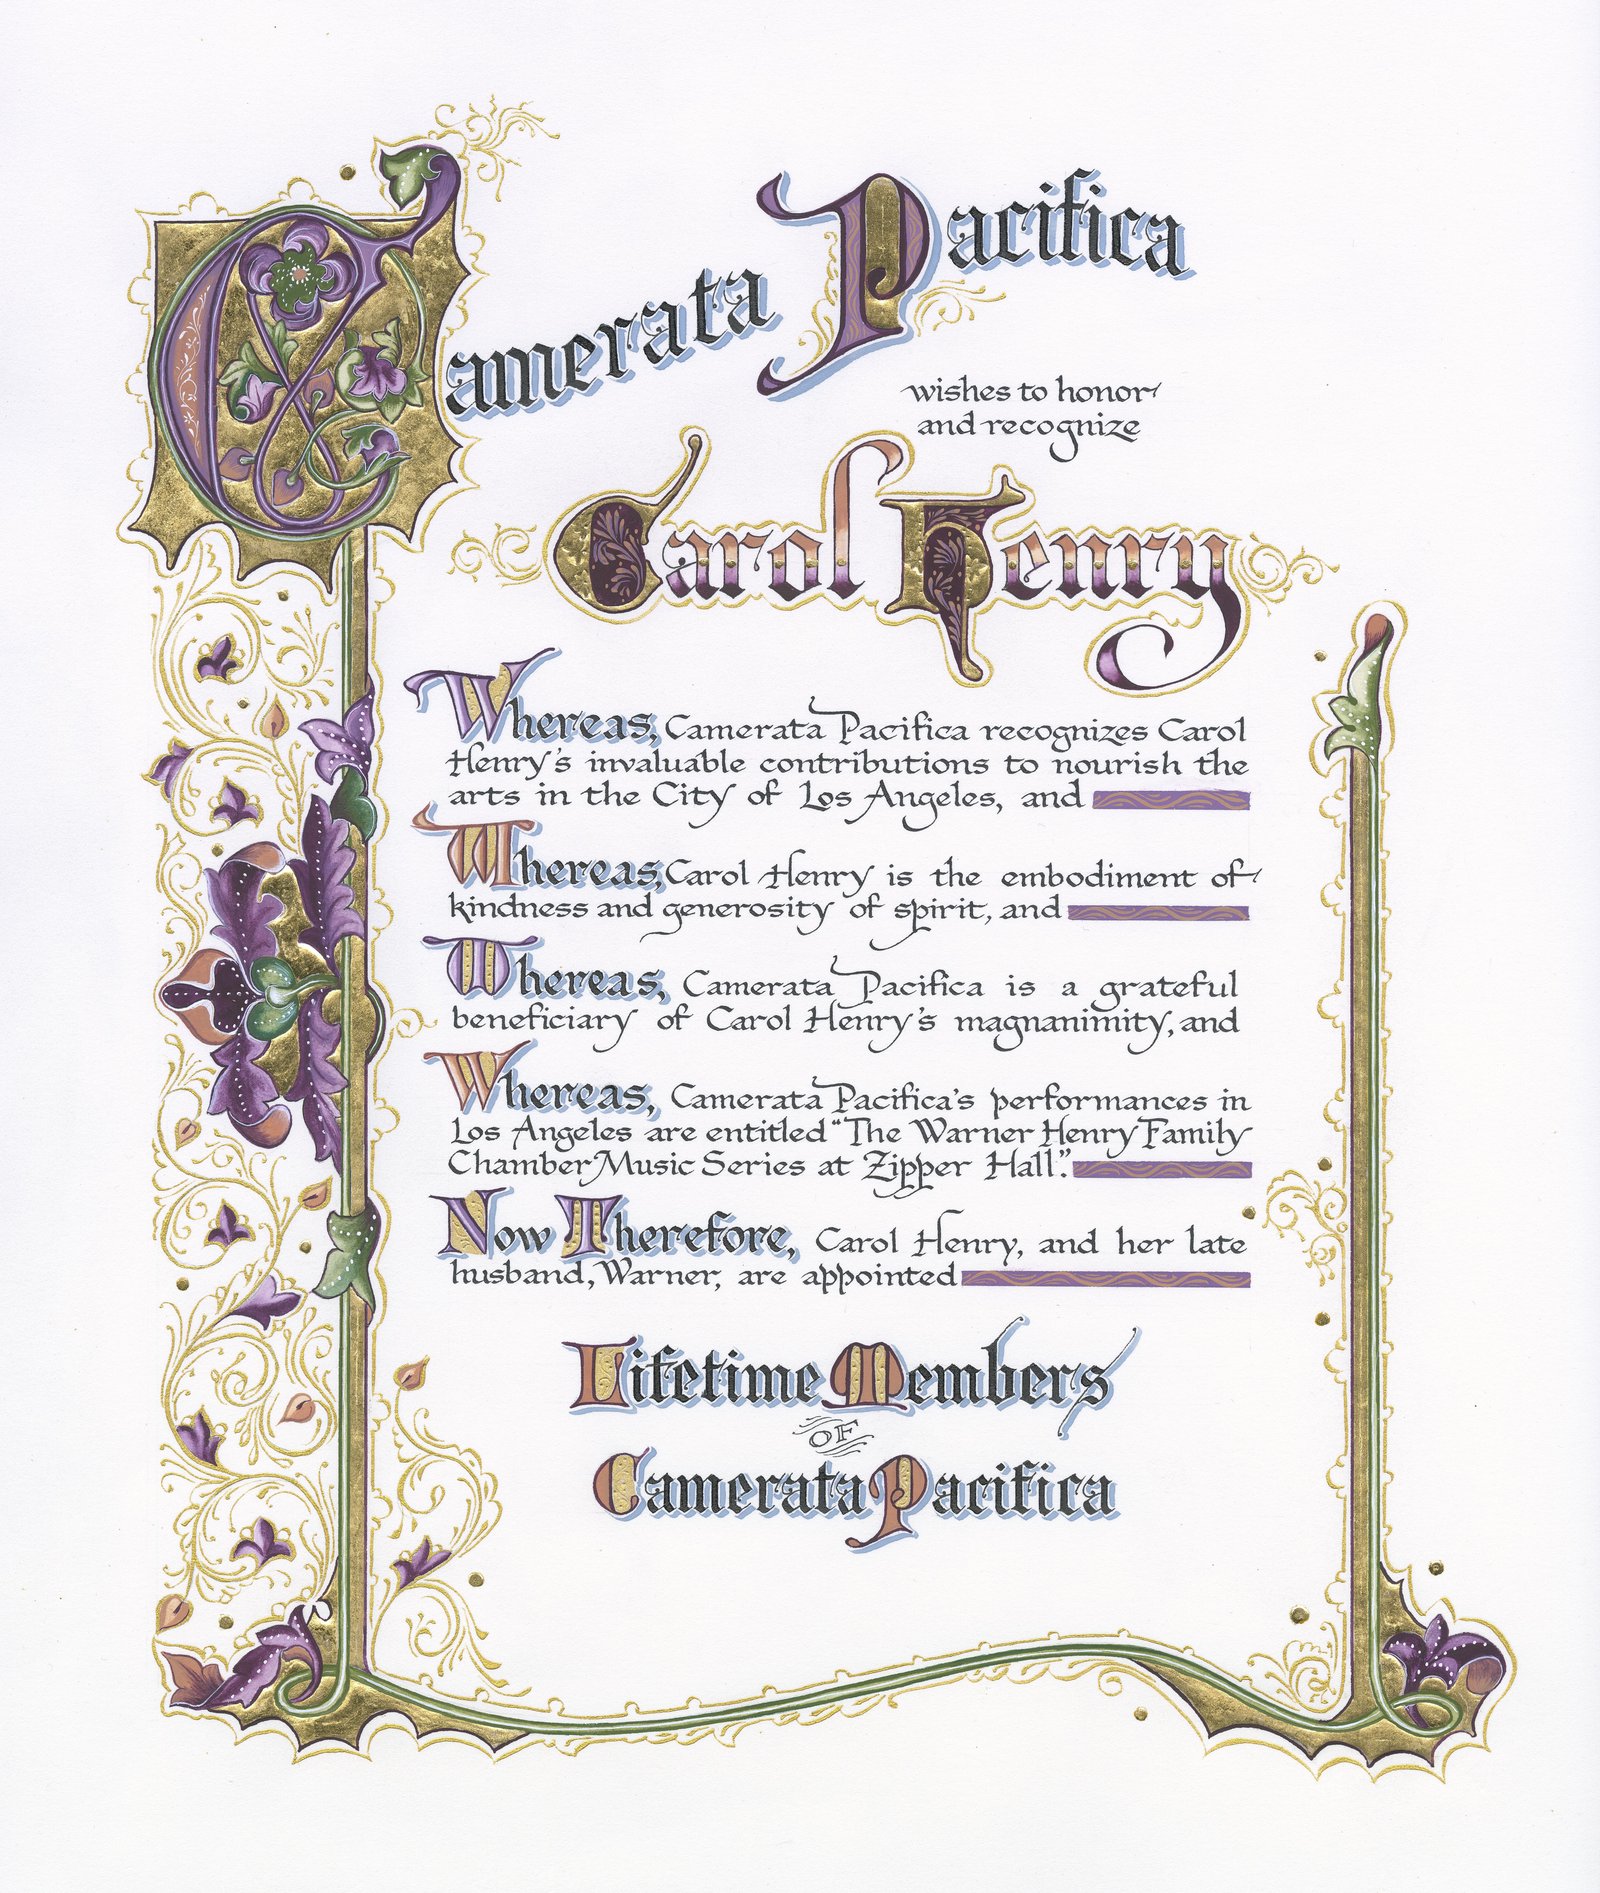 Camerata Pacifica
wishes to honor
and recognize
Carol Henry
Whereas, Camerata Pacifica recognizes Carol
Henry's invaluable contributions to nourish the
arts in the City of Los Angeles, and
Whereas, Carol Henry is the embodiment of
kindness and generosity of spirit, and
Whereas, Camerata Pacifica is a grateful
beneficiary of Carol Henry's magnanimity, and
Whereas, Camerata Pacifica's performances in
Los Angeles are entitled "The Warner Henry Family
Chamber Music Series at Zipper Hall".
Now Therefore, Carol Henry, and her late
husband, Warner, are appointed
Lifetime Members
OF
Camerata Pacifica